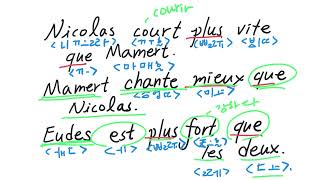 courir
Nicolas court plus vite
<니꼴라> <꾸흐> <쁠뤼> <비뜨>
que Mamert.
<끄> <마메흐>
Mamert chante mieux que
<샹뜨> <미으>
Nicolas.
강하다
Eudes est plus fort que
<외드> <에> <쁠뤼> <포흐>
les deux.
<레> <되>